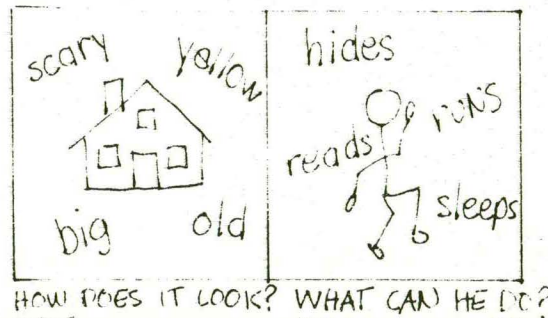 scary yellow
big old
hides
runs
reads
sleeps
HOW DOES IT LOOK? WHAT CAN HE DO?